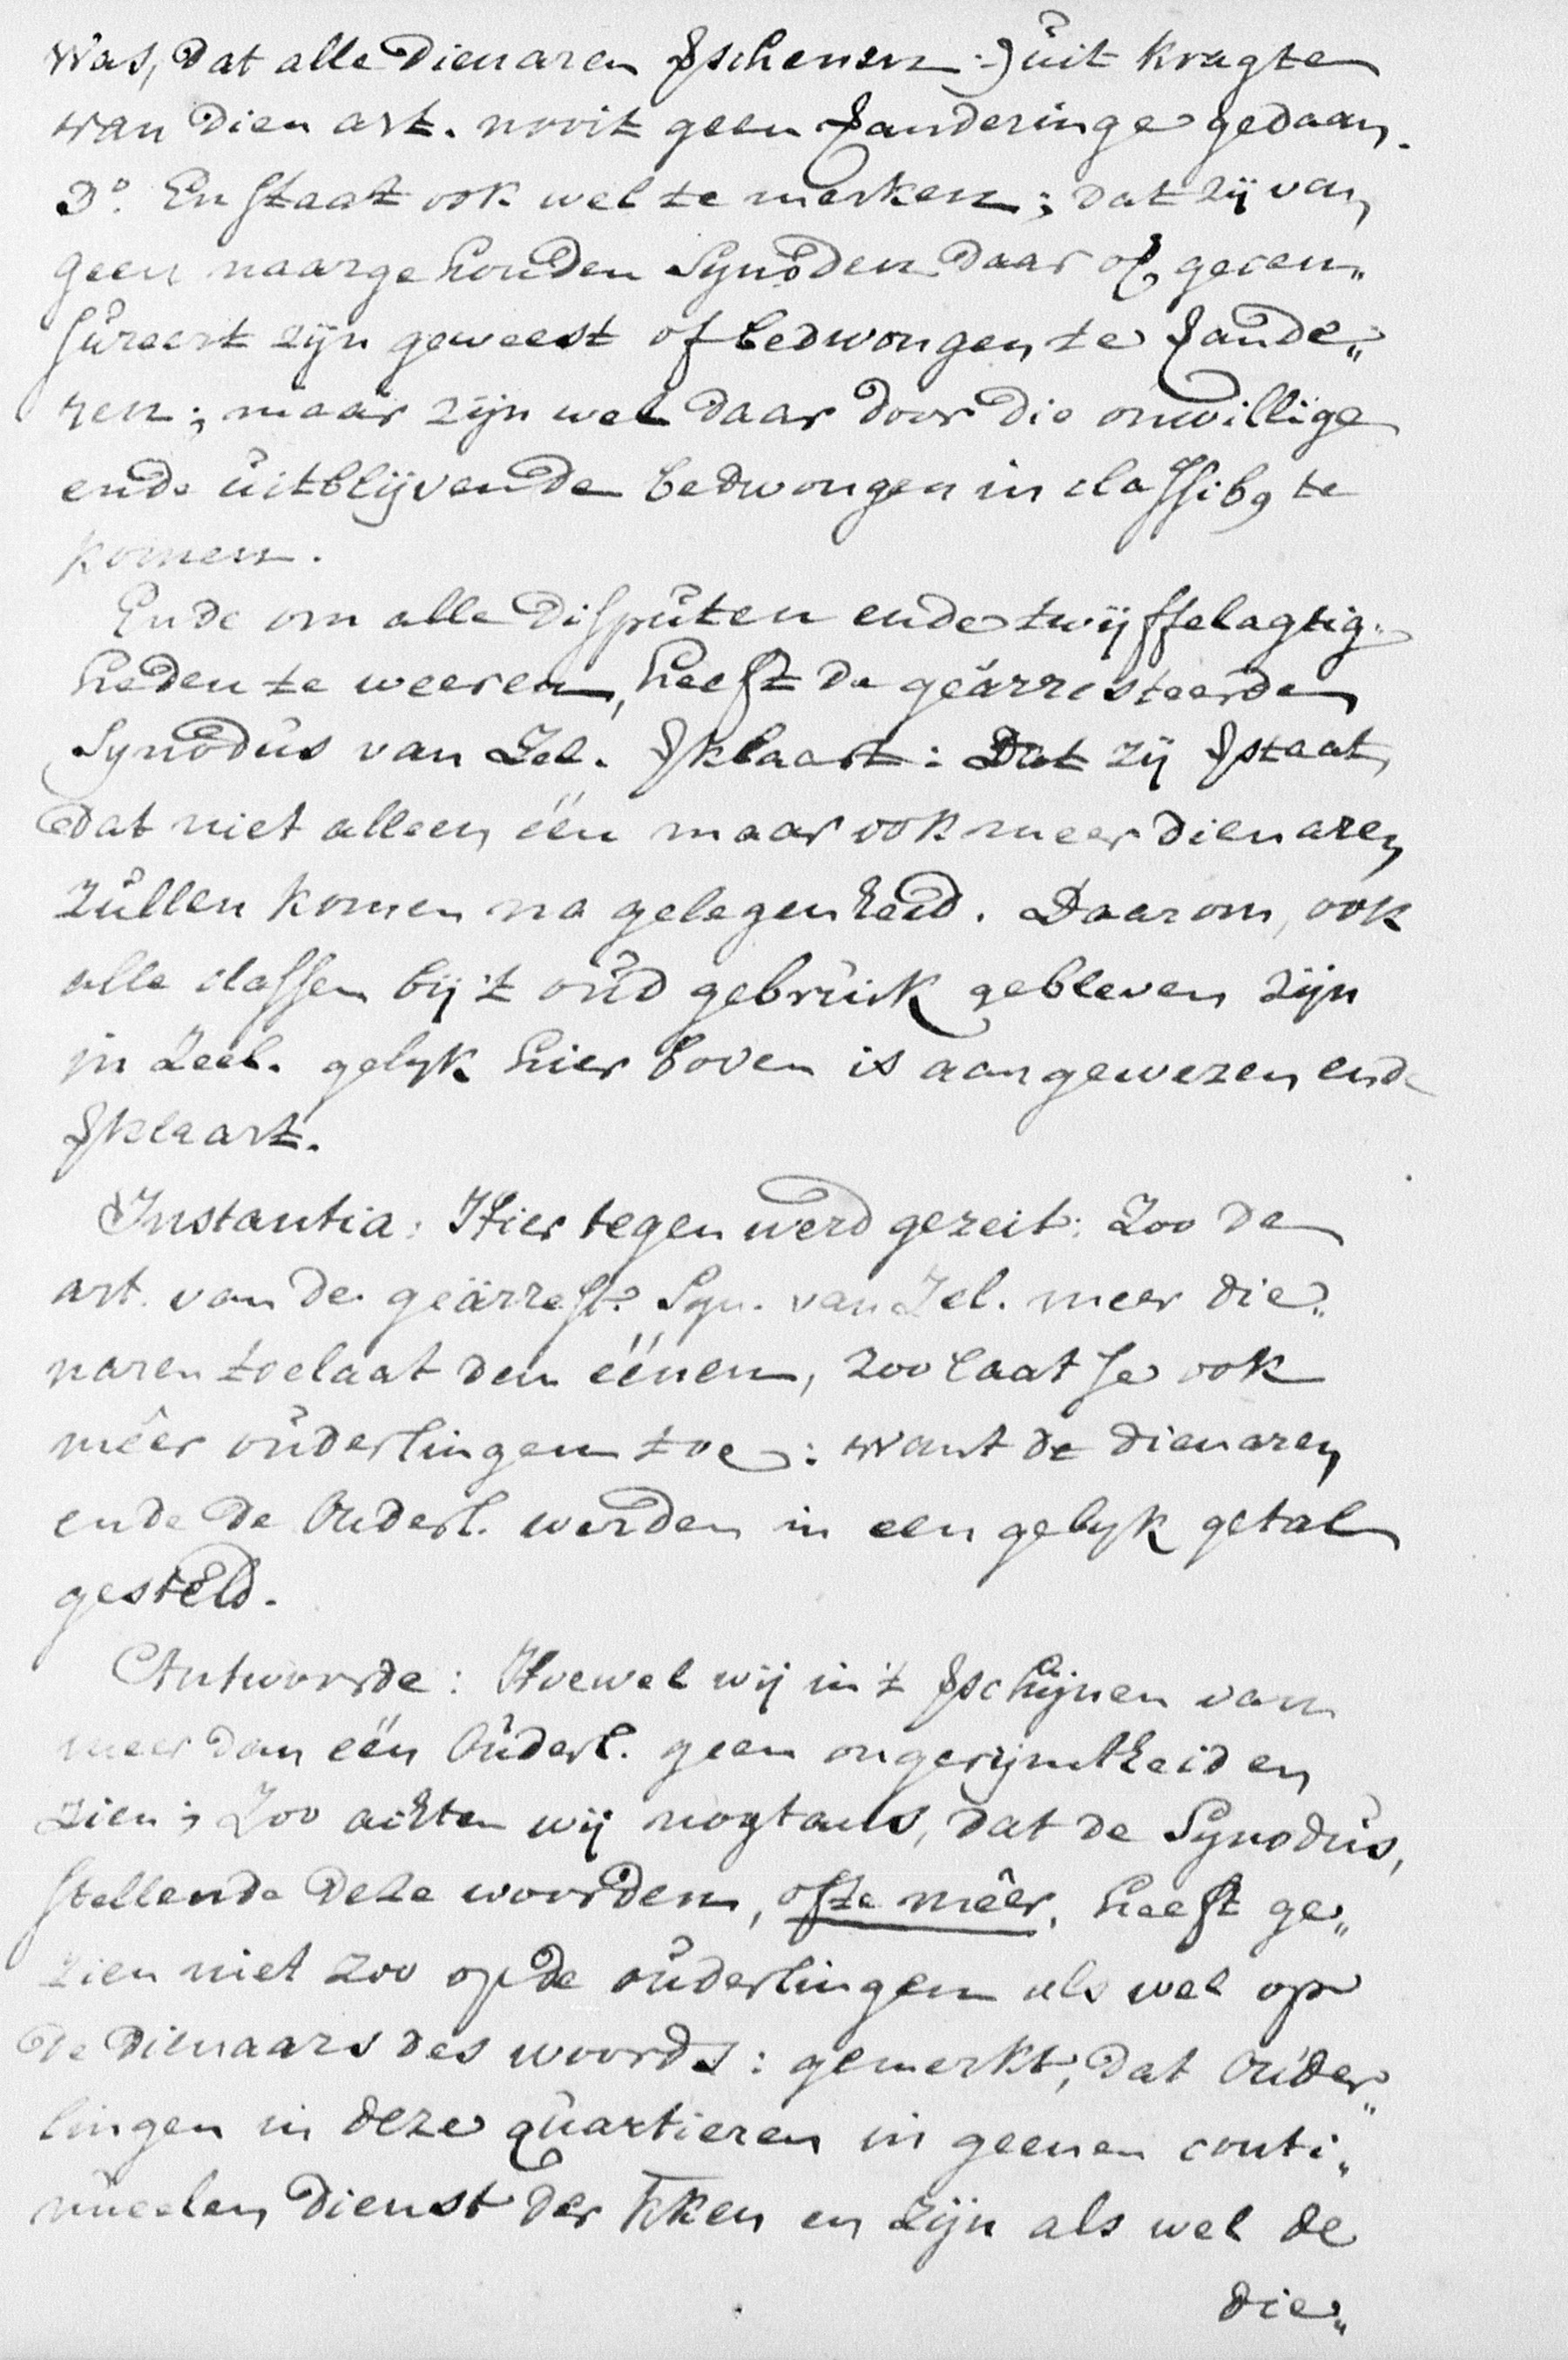 was, dat alle dienaren ꝟschenen :) uit kragte
van dien art. nooit geen ꝟanderinge gedaan.
3°. En staat ook wel te merken; dat zij van
geen naargehouden Synoden daar of gecen„
sureert zijn geweest of bedwongen te ꝟande„
ren; maar zijn wel daar door die onwillige
ende uitblijvende bedwongen in classibq te
komen.
Ende om alle disputen ende twijffelagtig„
heden te weeren, heeft de geärresteerde
Synodus van Zel. ꝟklaart: Dat zij ꝟstaat,
dat niet alleen één maar ook meer dienaren
zullen komen na gelegenheid. Daarom, ook
alle classen bij 't oud gebruik gebleven zijn
in Zeel. gelyk hier boven is aangewezen ende
ꝟklaart.
Instantia: Hier tegen werd gezeit: Zoo de
art. van de geärrest. Syn. van Zel. meer die„
naren toelaat den éénen, zoo laat se ook
mêer ouderlingen toe: want de dienaren
ende de Ouderl. werden in een gelyk getal
gesteld.
Antwoorde: Hoewel wij in 't ꝟschijnen van
meer dan één Ouderl. geen ongerijmtheid en
zien; Zoo achten wij nogtans, dat de Synodus,
stellende deze woorden, ofte mêer, heeft ge„
zien niet zoo op de ouderlingen als wel op
de dienaars des woords: gemerkt, dat Ouder„
lingen in deze quartieren in geenen conti„
nueelen dienst der kken en zijn als wel de
die„